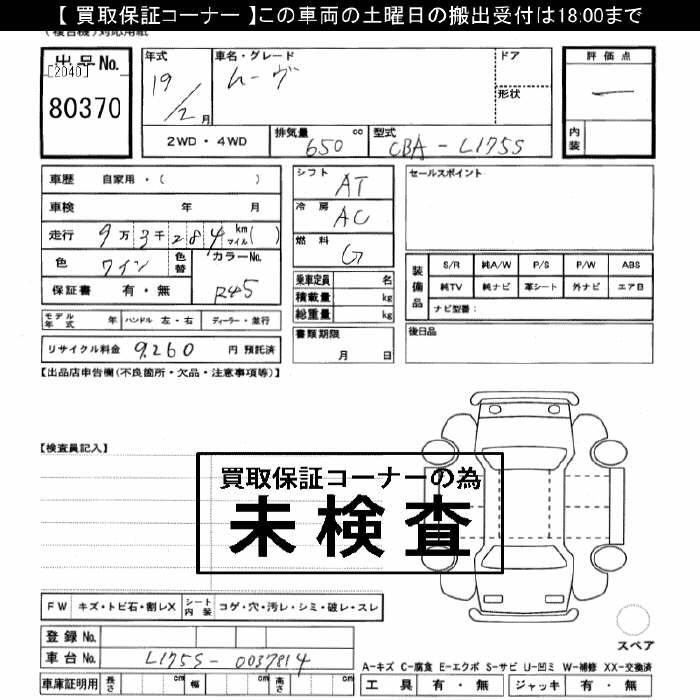 【 買取保証コーナー 】この車両の土曜日の搬出受付は18:00まで
(複合機)対応用紙
出品No.
[2040]
80370
年式
19/2月
車名・グレード
ムーヴ
ドア
形状
評価点
一
内装
2WD・4WD
排気量 650 cc
型式 CBA-L175S
車歴 自家用・( )
車検 年 月
走行 9万3千284 km マイル( )
色 ワイン 色替 カラーNo. R45
保証書 有・無
シフト AT
冷房 AC
燃料 G
セールスポイント
装備品
S/R 純A/W P/S P/W ABS
純TV 純ナビ 革シート 外ナビ エアB
ナビ型番:
乗車定員 名
積載量 kg
総重量 kg
モデル年式 年 ハンドル 左・右 ディーラー・並行
書類期限
月 日
後日品
リサイクル料金 9,260 円 預託済
【出品店申告欄(不良箇所・欠品・注意事項等)】
【検査員記入】
買取保証コーナーの為
未検査
FW キズ・トビ石・割レX シート内装 コゲ・穴・汚レ・シミ・破レ・スレ
登録No.
車台No. L175S-0037814
車庫証明用 長さ cm 幅 cm 高さ cm
スペア
A-キズ C-腐食 E-エクボ S-サビ U-凹ミ W-補修 XX-交換済
工具 有・無 ジャッキ 有・無